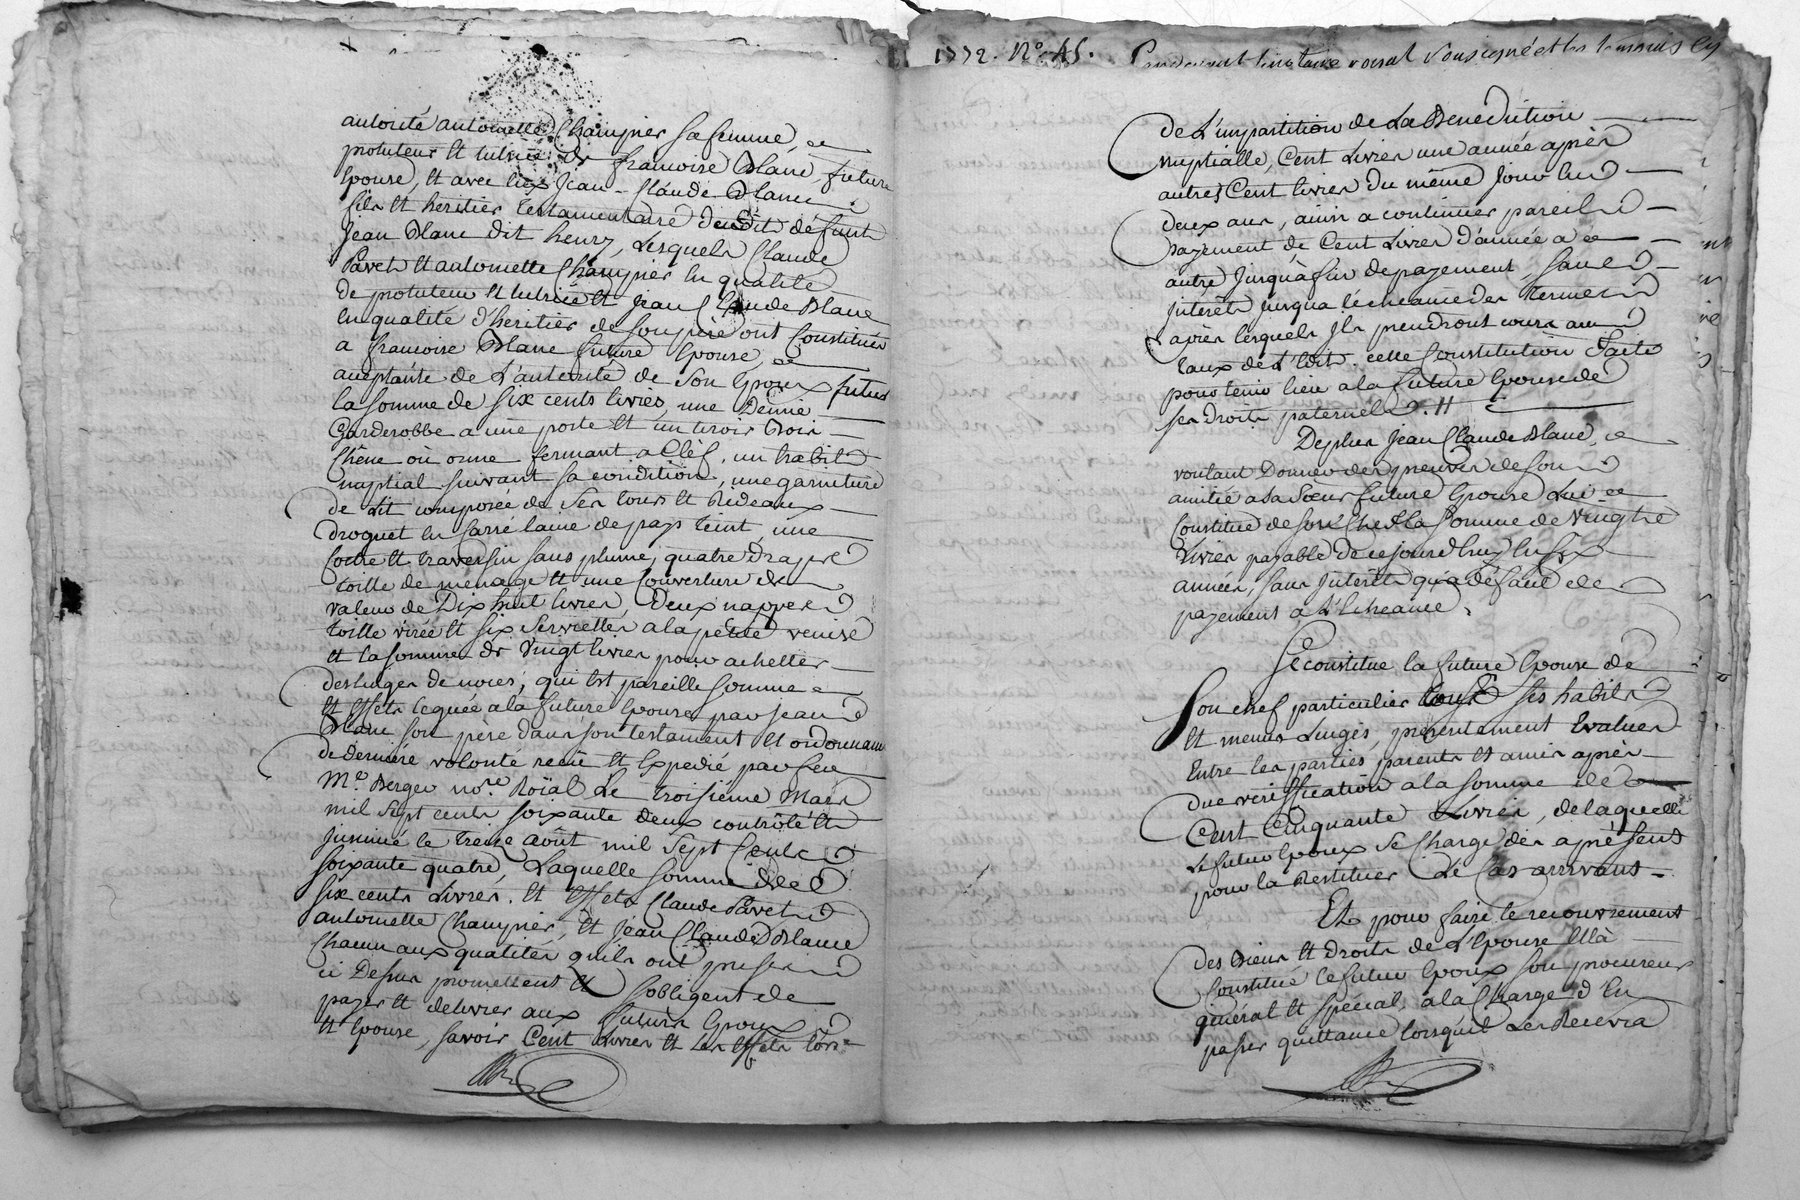 autorité antoinette Champier sa femme, ce
protuteur et tutrice de francoise Blanc, future
Epouse, et avec eux Jean-Claude Blanc
fils et heritier testamentaire dudit défunt
Jean Blanc dit henry, Lesquels Claude
Pavet et antoinette Champier en qualité
de protuteur et tutrice et Jean Claude Blanc
en qualité d'heritier de son père ont Constitués
a francoise Blanc future Epouse, ce
acceptante de L'autorité de son Epoux futur
la somme de six cents livres, une Demie
Garderobbe a une porte et un tiroir Bois
Chêne où orme fermant a Clèf, un habit
nuptial suivant sa condition, une garniture
de Lit composée de ses tours et Rideaux
droguet en sarré laine de pays teint, une
Coitre et traversin sans plume, quatre draps
toille de menage et une Couverture de
valeur de Dix huit livres, Deux nappes
toille virée et six serviettes a la petite venise
et la somme de Vingt livres pour achetter
des linges de noces, qui est pareille somme
et effets leguée a la future Epouse par Jean
Blanc son père dans son testament et ordonnance
de derniére volonté reçû et Expedié par feu
Me. Berger nore. Roïal Le troisieme Mars
mil sept cents soixante deux contrôlé et
Insinué le treize août mil sept Cents
soixante quatre, Laquelle somme de
six cents Livres. et effets Claude Pavet
antoinette Champier, et Jean Claude Blanc
Chacun aux qualités qu'ils ont prises
ci Dessus promettent et s'obligent de
payer et delivrer aux futurs Epoux
et Epouse, savoir Cent Livres et les effets lors
1772. No. 45.
royal soussigné et les temoins
de L'impartition de La Benediction
nuptialle, Cent Livres une année après
autres Cent livres du même Jour en
deux ans, ainsi a continuer pareil
payement de Cent Livres d'année a
autre Jusqu'à fin de payement, sans
intérêts jusqu'a l'écheance des termes
après lesquels Ils prendront cours au
taux de L'Edit. cette Constitution faite
pour tenir lieu a la future Epouse de
ses droits paternels. //
De plus Jean Claude Blanc, ce
voulant Donner des preuves de son
amitié a sa Sœur future Epouse Lui
Constitue de son Chef la somme de Vingt
Livres payable de ce jourd'huy en six
années, sans intérêts qu'a défaut de
payement a L'Echeance.
Se constitue la future Epouse de
Son chef particulier tous ses habits
et menus Linges, présentement Evalués
Entre les parties, parents et amis après
due vérification a la somme de
Cent Cinquante Livres, de laquelle
Le futur Epoux se Charge dès apresent
pour la Restituer Le Cas arrivant.
Et pour faire le recouvrement
des Biens et droits de L'Epouse Ella
Constitué le futur Epoux son procureur
général et spécial, a la Charge d'En
passer quittance lorsqu'il Les Recevra